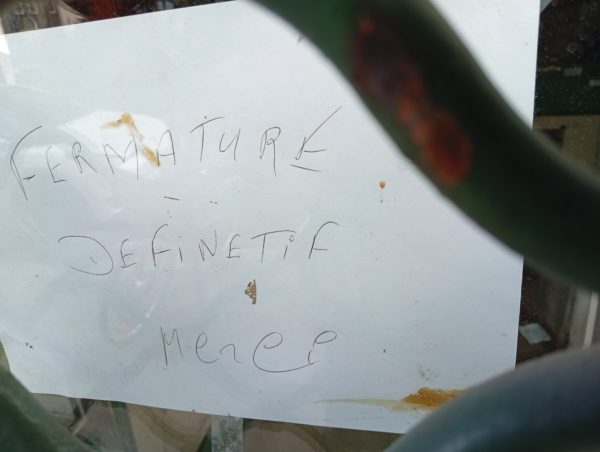 FERMATURE
DEFINETIF
Merce